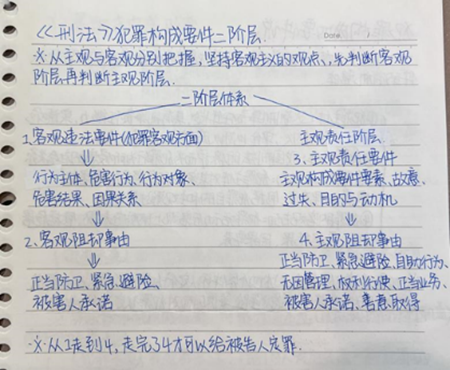 《刑法》犯罪构成要件二阶层.
Date
※从主观与客观分别把握,坚持客观主义的观点、先判断客观
阶层再判断主观阶层.
二阶层体系
1、客观违法要件(犯罪客观方面)
行为主体、危害行为、行为对象、
危害结果、因果关系
2、客观阻却事由
正当防卫、紧急避险、
被害人承诺
主观责任阶层.
3、主观责任要件
主观构成要件要素、故意、
过失、目的与动机
4、主观阻却事由
正当防卫、紧急避险、自助行为、
无因管理、权利行使、正当业务、
被害人承诺、善意取得
※从1走到4,走完了4才可以给被告人定罪.